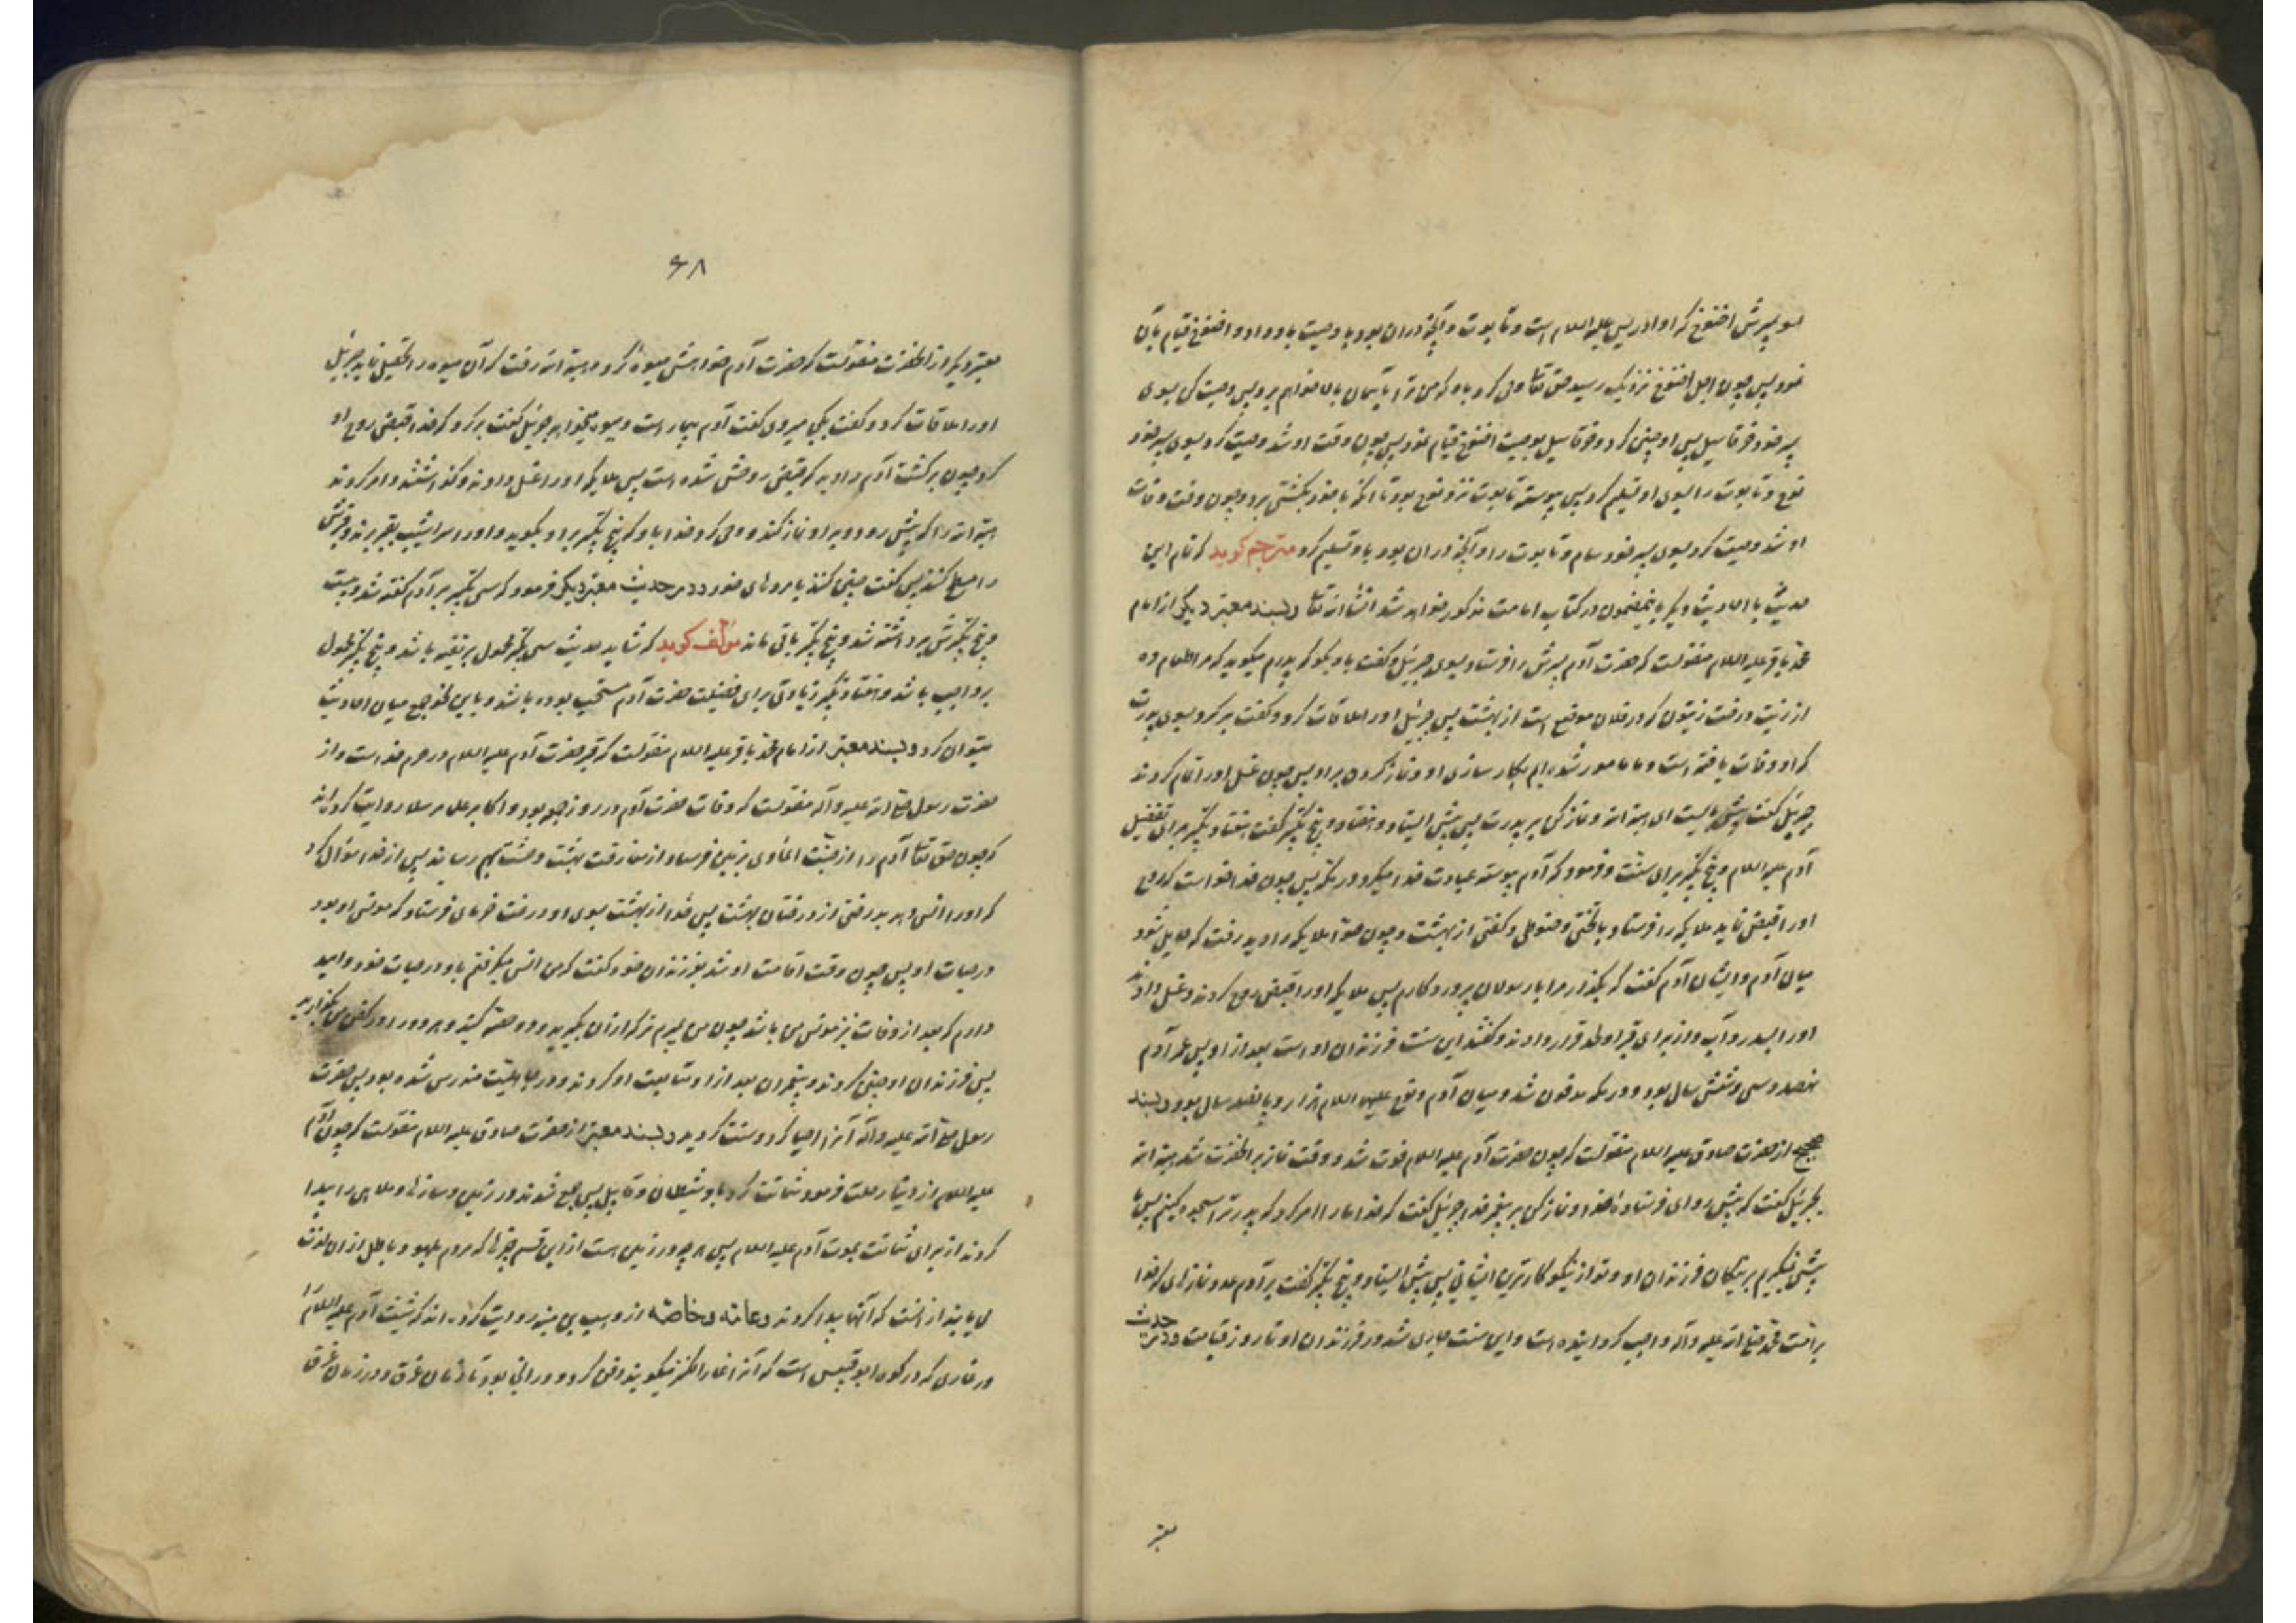 بسوی پسرش اخنوخ که او ادریس علیه السلام است و تابوت و آنچه در آن بود با وصیت باو داد و اخنوخ قیام بآن
نمود پس چون اجل اخنوخ نزدیک رسید حق تعالی وحی کرد باو که من ترا بآسمان بالا خواهم برد پس وصیت کن بسوی
پسر خود خرقاسیل پس او چنین کرد و خرقاسیل بوصیت اخنوخ قیام نمود پس چون وقت او شد وصیت کرد بسوی پسر خود
نوح و تابوت را بسوی او تسلیم کرد پس پیوسته تابوت نزد نوح بود تا آنکه با خود بکشتی برد و چون وقت وفات
او شد وصیت کرد بسوی پسر خود سام و تابوت را و آنچه در ان بود باو تسلیم کرد مترجم کوید که تمام این
حدیث با احادیث دیگر باینمضمون در کتاب امامت مذکور خواهد شد انشا الله تعالی و بسند معتبر دیگر از امام
محمد باقر علیه السلام منقولست که حضرت آدم پسرش را فرستاد بسوی جبرئیل و گفت باو بگو که پدرم میگوید که مرا طعام ده
از زیت درخت زیتون که در فلان موضع است از بهشت پس جبرئیل او را ملاقات کرد و گفت برگرد بسوی پدرت
که او وفات یافته است و ما مامور شده ایم بکار سازی او و نماز کردن بر او پس چون غسل او را تمام کردند
جبرئیل گفت پیش بایست ای هبة الله و نماز کن بر پدرت پس پیش ایستاد و هفتاد و پنج تکبیر گفت هفتاد تکبیر برای تفضیل
آدم علیه السلام و پنج تکبیر برای سنت و فرمود که آدم پیوسته عبادت خدا میکرد در مکه پس چون خدا خواست که روح
او را قبض نماید ملایکه را فرستاد با تختی و حنوطی و کفنی از بهشت و چون حوا ملایکه را دید رفت که حایل شود
میان آدم و ایشان آدم گفت که بگذار مرا با رسولان پروردگارم پس ملایکه او را قبض روح کردند و غسل دادند
او را بسدر و آب و از برای قبر او لحد قرار دادند و گفتند این سنت فرزندان اوست بعد از او پس عمر آدم
نهصد و سی و شش سال بود و در مکه مدفون شد و میان آدم و نوح علیهما السلام هزار و پانصد سال بود و بسند
صحیح از حضرت صادق علیه السلام منقولست که چون حضرت آدم علیه السلام فوت شد و وقت نماز بر آنحضرت شد هبة الله
بجبرئیل گفت که پیش رو ای فرستاده خدا و نماز کن بر پیغمبر خدا جبرئیل گفت که خدا ما را امر کرد که پدر ترا سجده کنیم پس ما
پیشی نمیگیریم بر نیکان فرزندان او و تو از نیکوکارترین ایشانی پس پیش ایستاد و پنج تکبیر گفت بر آدم بعدد نمازهای که خدا
بر امت محمد صلی الله علیه و آله واجب گردانیده است و این سنت جاری شد در فرزندان او تا روز قیامت و در حدیث
معتبر
۶۸
معتبر دیگر از آنحضرت منقولست که حضرت آدم خواهش میوه کرد و هبة الله رفت که آن میوه را تحصیل نماید جبرئیل
او را ملاقات کرد و گفت بکجا میروی گفت آدم بیمار است و میوه میخواهد جبرئیل گفت برگرد که خدا قبض روح او
کرد چون برگشت آدم را دید که قبض روحش شده است پس ملایکه او را غسل دادند و گذاشتند و امر کردند
هبة الله را که پیش رود و بر او نماز کند و وحی کرد خدا باو که پنج تکبیر بر او بگوید و او را سراشیب بقبر برند و قبرش
را مسطح کنند پس گفت چنین کنند با مردهای خود و در حدیث معتبر دیگر فرمود که سی تکبیر بر آدم گفته شد و بیست
و پنج تکبیرش برداشته شد و پنج تکبیر باقی ماند مؤلف کوید که شاید حدیث سی تکبیر محمول بر تقیه باشد و پنج تکبیر محمول
بر واجب باشد و هفتاد تکبیر زیادتی برای فضیلت حضرت آدم مستحب بوده باشد و باین نحو جمع میان احادیث
میتوان کرد و بسند معتبر از امام محمد باقر علیه السلام منقولست که قبر حضرت آدم علیه السلام در حرم خداست و از
حضرت رسول صلی الله علیه و آله منقولست که وفات حضرت آدم در روز جمعه بود و اکابر علما مرسلا روایت کرده اند
که چون حق تعالی آدم را از جنت الماوی بزمین فرستاد از مفارقت بهشت وحشت بهم رسانید پس از خدا سؤال کرد
که او را انس دهد بدرختی از درختان بهشت پس خدا از بهشت بسوی او درخت خرمای فرستاد که مونس او بود
در حیات او پس چون وقت اقامت او شد بفرزندان خود گفت که من انس میگرفتم باو در حیات خود و امید
دارم که بعد از وفات نیز مونس من باشد چون من بمیرم ترکه از آن بگیرید و دو حصه کنید و هر دو را در کفن من بگذارید
پس فرزندان او چنین کردند و پیغمبران بعد از او متابعت او کردند و در جاهلیت مندرس شده بود پس حضرت
رسول صلی الله علیه و آله آنرا احیا کرد و سنت گردید و بسند معتبر از حضرت صادق علیه السلام منقولست که چون آدم
علیه السلام از دنیا رحلت فرمود شماتت کرد باو شیطان و قابیل پس جمع شدند در زمین و سازها و ملاهی را پیدا
کردند از برای شماتت بموت آدم علیه السلام پس هر چه در زمین است از این قسم چیزها که مردم بلهو و باطل از ان لذت
می یابند از آنست که آنها پیدا کردند و عامه و خاصه از وهب بن منبه روایت کرده اند که شیث آدم علیه السلام را
در غاری که در کوه ابو قبیس است که آنرا غار الکنز میگویند دفن کرد و در آنجا بود تا زمان غرق و در زمان غرق